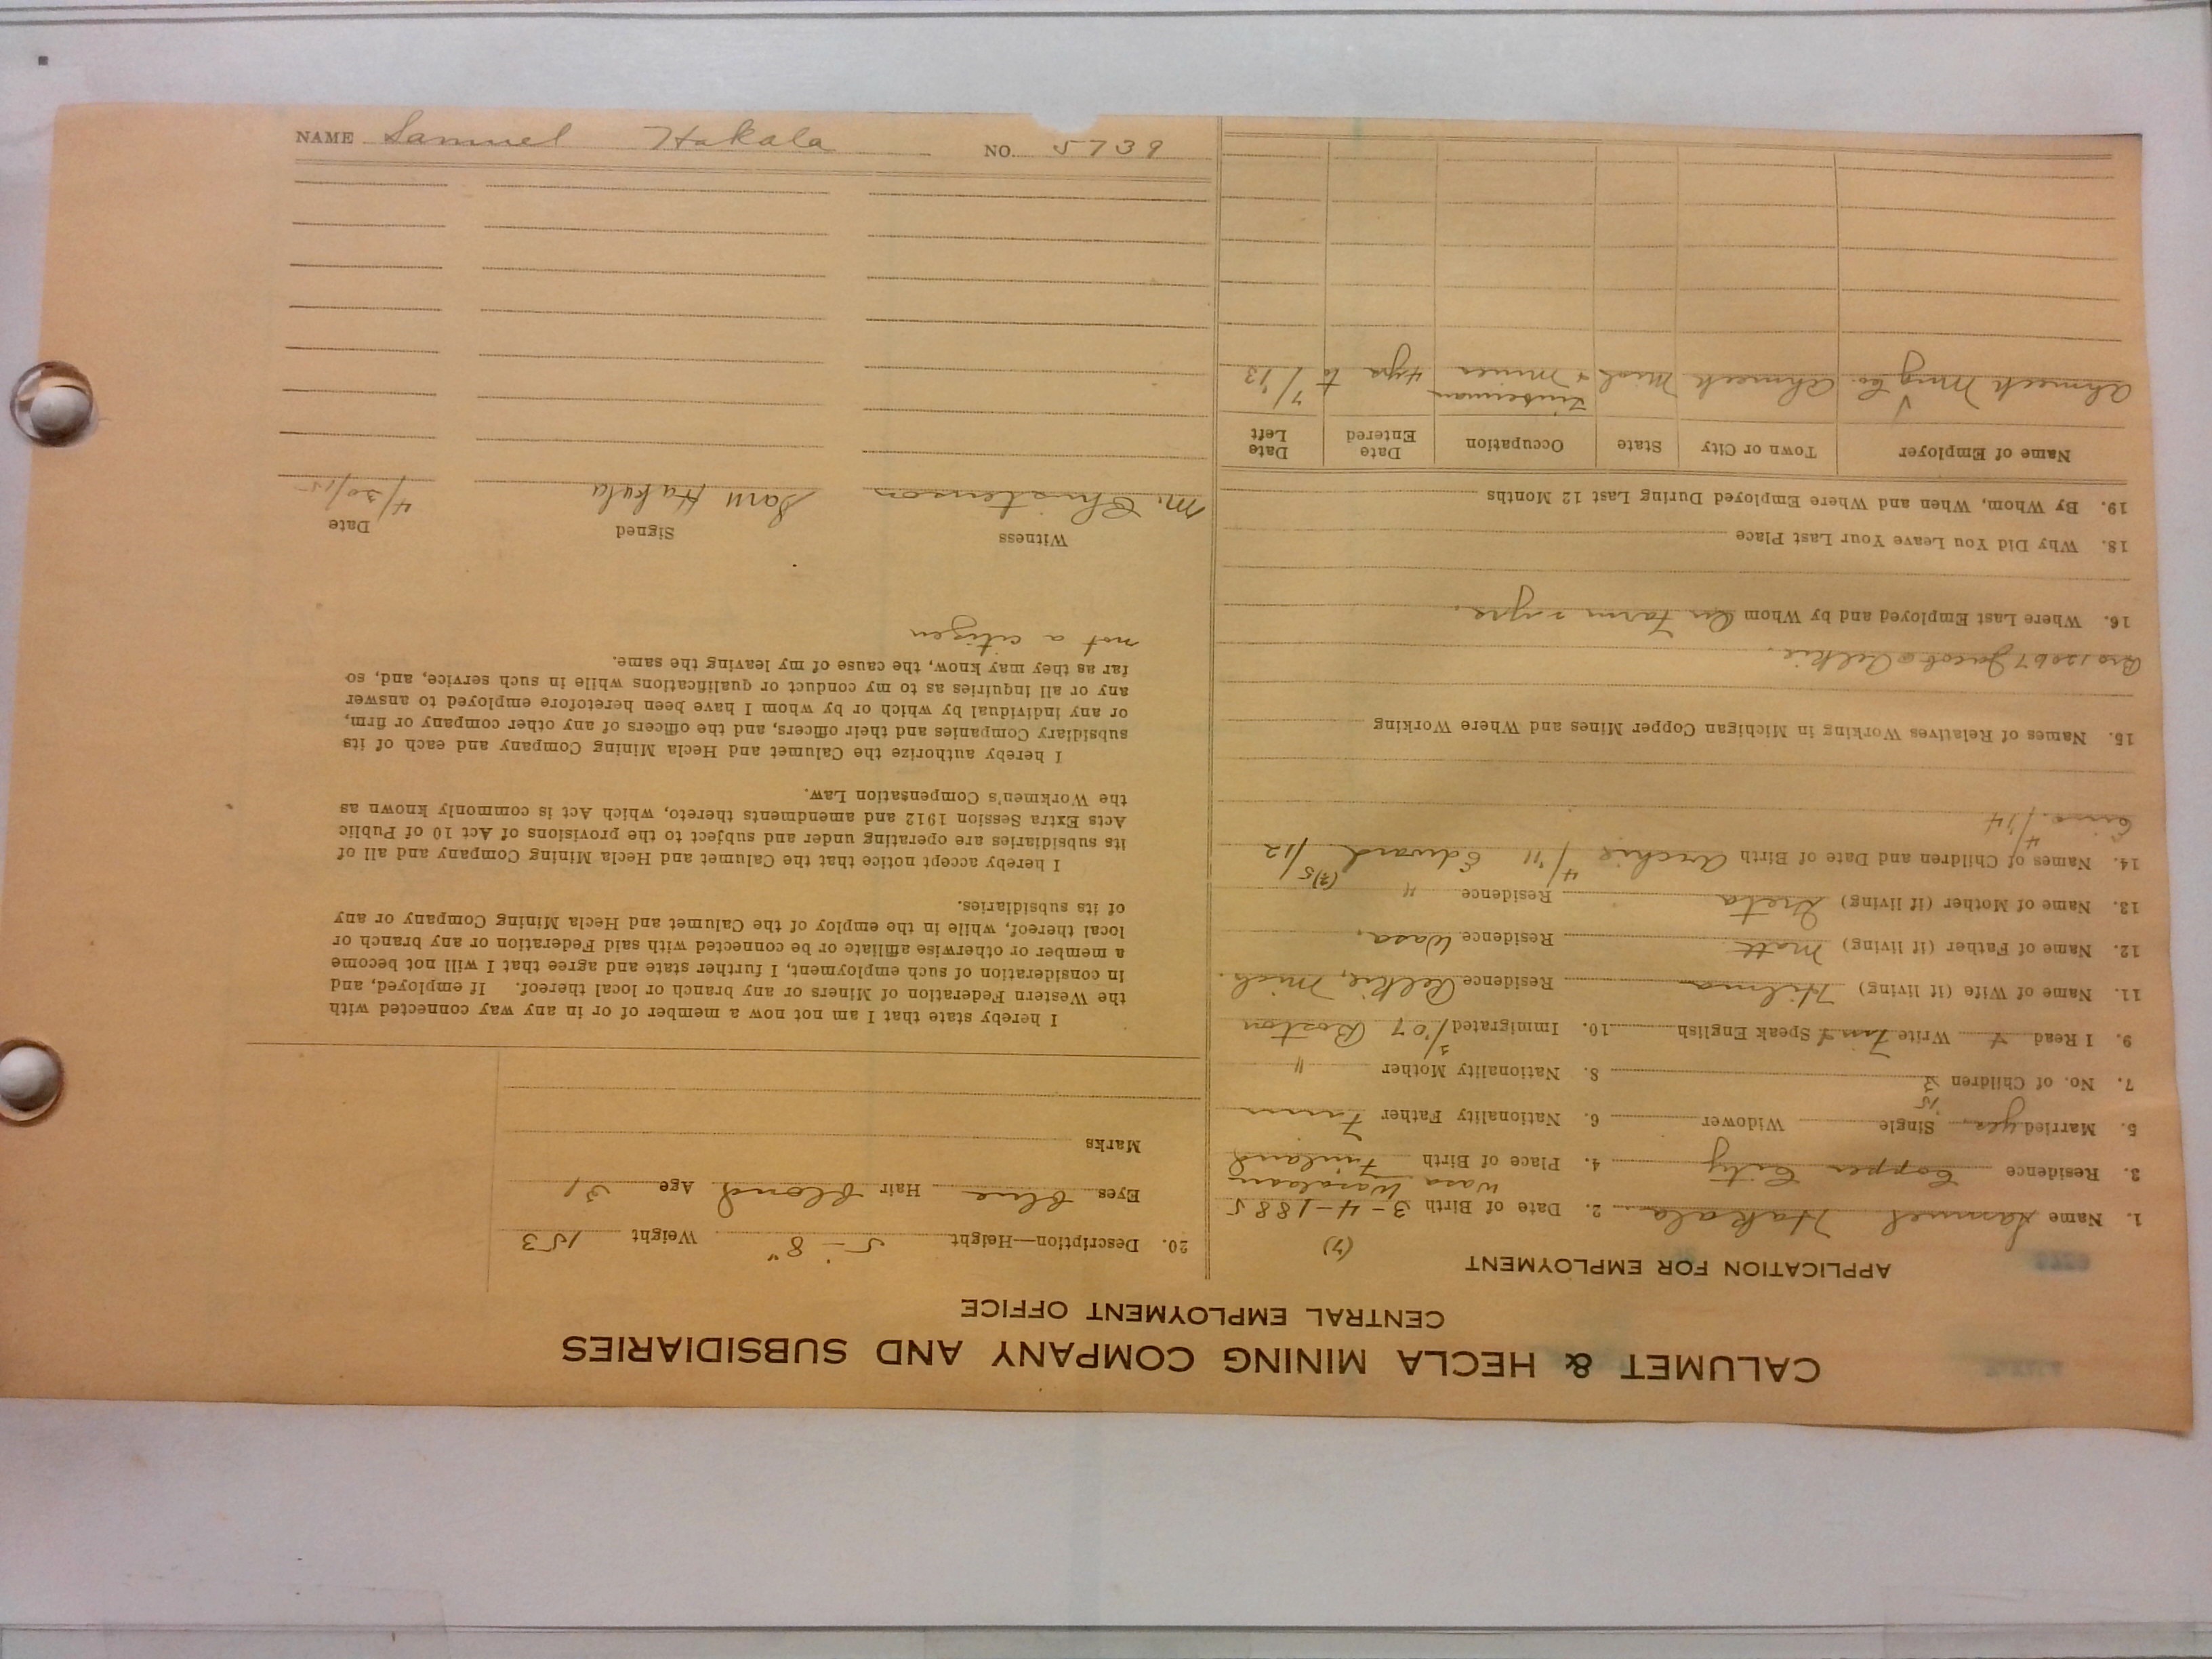 CALUMET & HECLA MINING COMPANY AND SUBSIDIARIES
CENTRAL EMPLOYMENT OFFICE
APPLICATION FOR EMPLOYMENT
(7)
1. Name Samuel Hakala 2. Date of Birth 3-4-1885
Wasa Wasalaani
3. Residence Copper City 4. Place of Birth Finland
5. Married yes Single Widower 6. Nationality Father Finn
'15
7. No. of Children 3 8. Nationality Mother "
9. I Read + Write Finn & Speak English 10. Immigrated 5/'07 Boston
11. Name of Wife (if living) Hilma Residence Aelkie, Mich.
12. Name of Father (if living) Matt Residence Wasa,
13. Name of Mother (if living) Greta Residence "
14. Names of Children and Date of Birth Archie 4/'11 Edward (2) 5/12
Eino. 4/'14
15. Names of Relatives Working in Michigan Copper Mines and Where Working
Bro 12067 Jacob @ Aelkie.
16. Where Last Employed and by Whom On Farm 2 yrs.
18. Why Did You Leave Your Last Place
19. By Whom, When and Where Employed During Last 12 Months
Name of Employer Town or City State Occupation Date Entered Date Left
Ahmeek Mng Co. Ahmeek Mich Timberman + miner 4 yrs to 7/'13
20. Description—Height 5-8" Weight 153
Eyes Blue Hair Blond Age 31
Marks
I hereby state that I am not now a member of or in any way connected with
the Western Federation of Miners or any branch or local thereof. If employed, and
in consideration of such employment, I further state and agree that I will not become
a member or otherwise affiliate or be connected with said Federation or any branch or
local thereof, while in the employ of the Calumet and Hecla Mining Company or any
of its subsidiaries.
I hereby accept notice that the Calumet and Hecla Mining Company and all of
its subsidiaries are operating under and subject to the provisions of Act 10 of Public
Acts Extra Session 1912 and amendments thereto, which Act is commonly known as
the Workmen's Compensation Law.
I hereby authorize the Calumet and Hecla Mining Company and each of its
subsidiary Companies and their officers, and the officers of any other company or firm,
or any individual by which or by whom I have been heretofore employed to answer
any or all inquiries as to my conduct or qualifications while in such service, and, so
far as they may know, the cause of my leaving the same.
not a citizen
Witness Signed Date
M. Christenson Sam Hakala 4/30/15
NAME Samuel Hakala NO. 5739